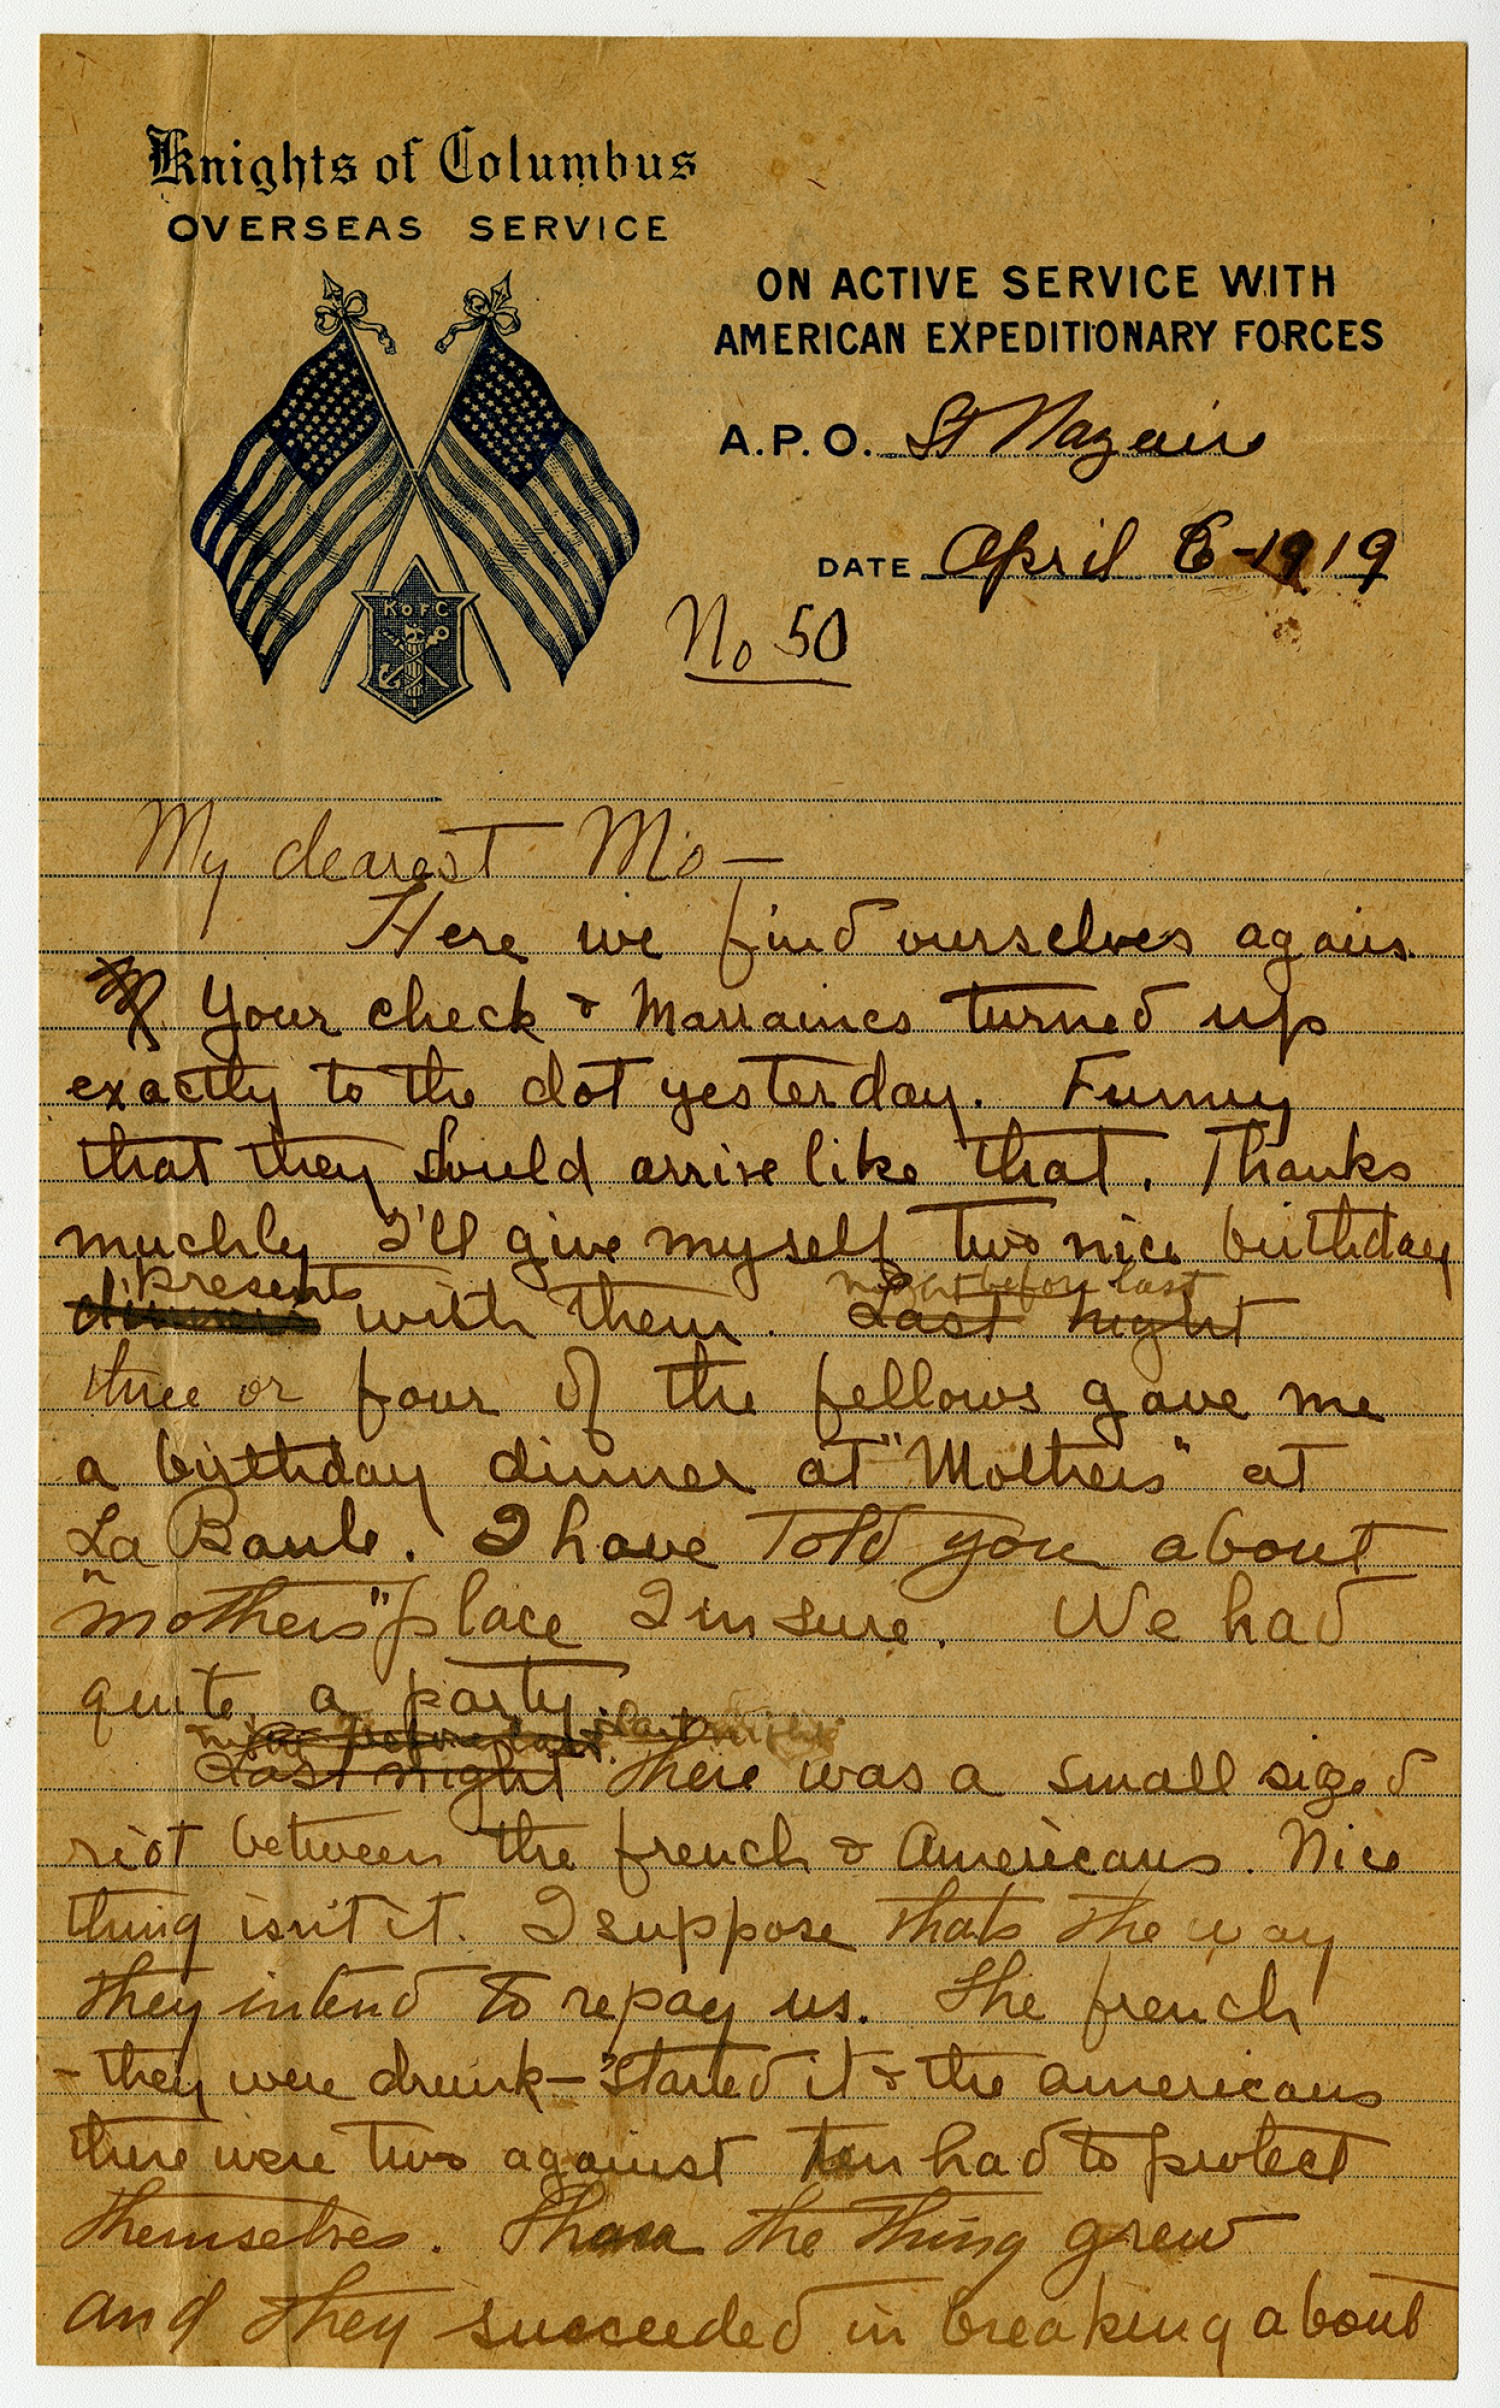 Knights of Columbus
OVERSEAS SERVICE
ON ACTIVE SERVICE WITH
AMERICAN EXPEDITIONARY FORCES
A.P.O. St Nazaire
DATE April 6-1919
No 50
K of C
My dearest Mo—
Here we find ourselves again.
Your check & Marraines turned up
exactly to the dot yesterday. Funny
that they sould arrive like that. Thanks
muchly I'll give myself two nice birthday
presents
dinners with them.
night before last
Last night
three or four of the fellows gave me
a birthday dinner at "Mothers" at
La Baule. I have told you about
"mothers" place I'm sure. We had
quite a party.
night before last. Last night
Last night there was a small sized
riot between the french & Americans. Nice
thing isn't it. I suppose thats the way
they intend to repay us. The french
- they were drunk - started it & the americans
there were two against ten had to protect
themselves. Then the thing grew
and they succeeded in breaking about